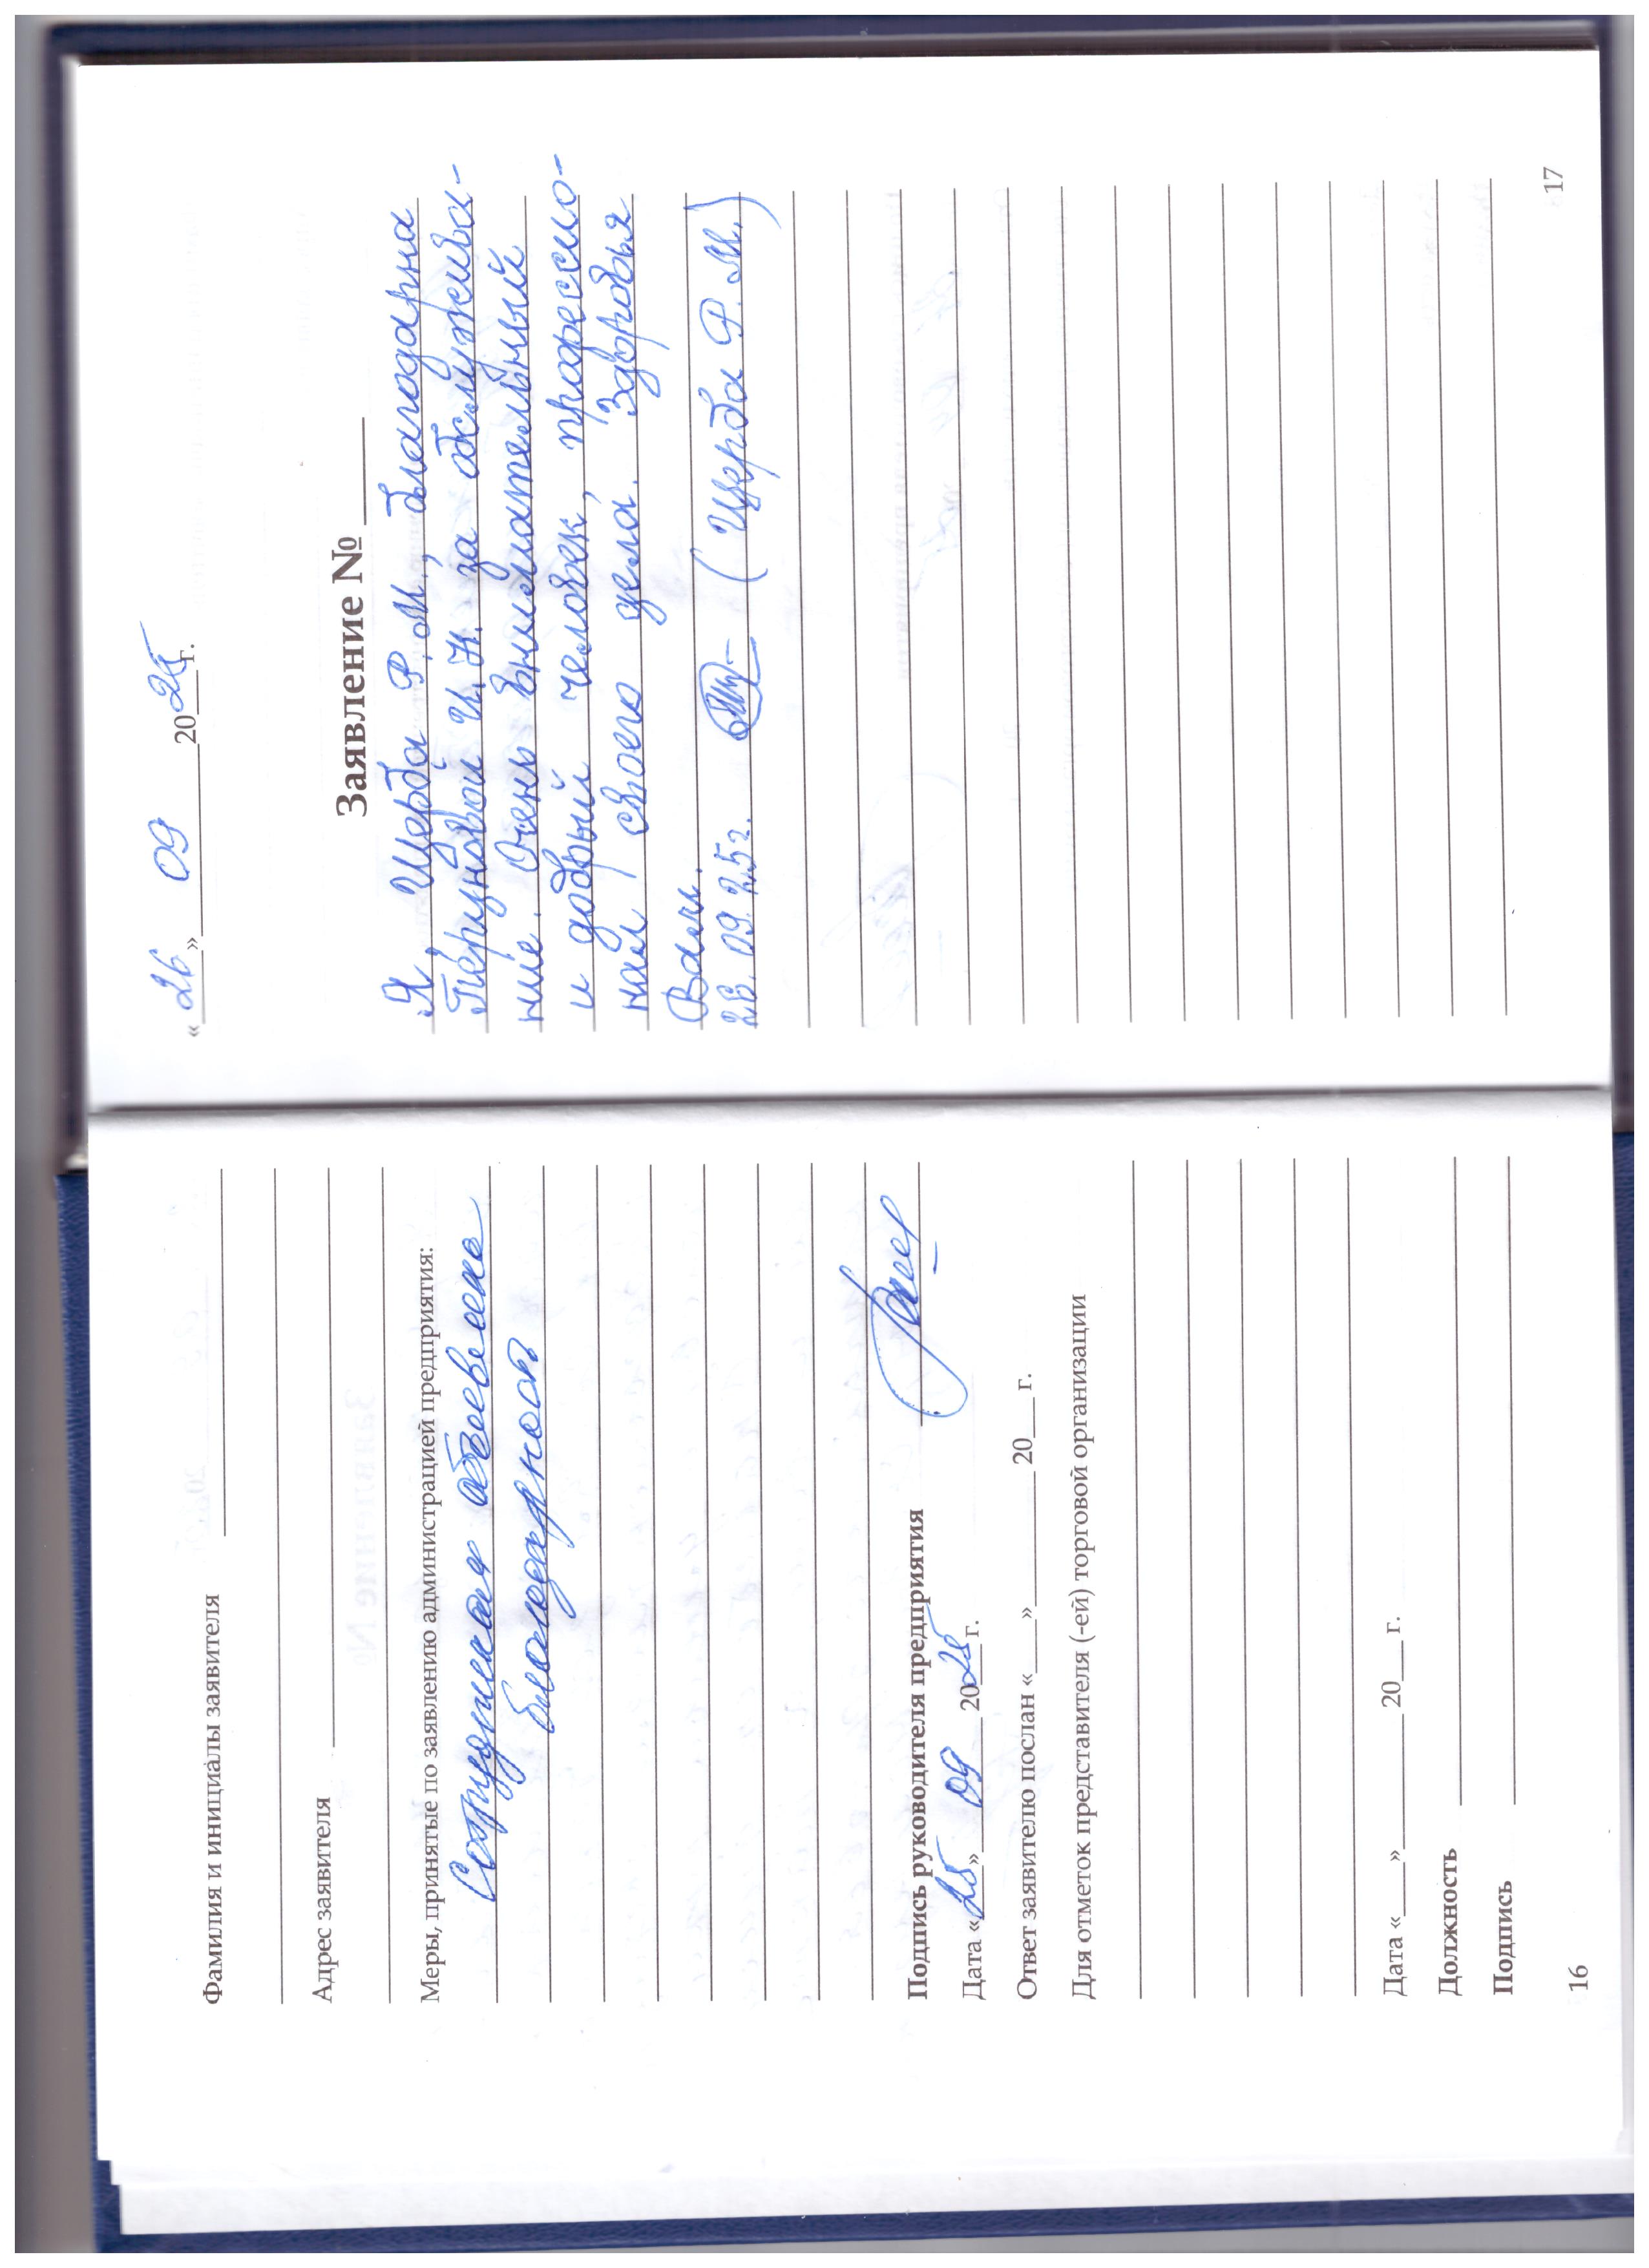 Фамилия и инициалы заявителя
Адрес заявителя
Меры, принятые по заявлению администрацией предприятия:
Сотруднику объявлена
благодарность
Подпись руководителя предприятия
Дата «25» 09 2025 г.
Ответ заявителю послан «___» 20___ г.
Для отметок представителя (-ей) торговой организации
Дата «___» 20___ г.
Должность
Подпись
16
«26» 09 2025 г.
Заявление №
Я, Щерба Р. М., благодарна
Перцувой И. Н. за обслужива-
ние. Очень внимательный
и добрый человек, профессио-
нал своего дела. Здоровья
Вам.
26.09.25г. (Щерба Р. М.)
17